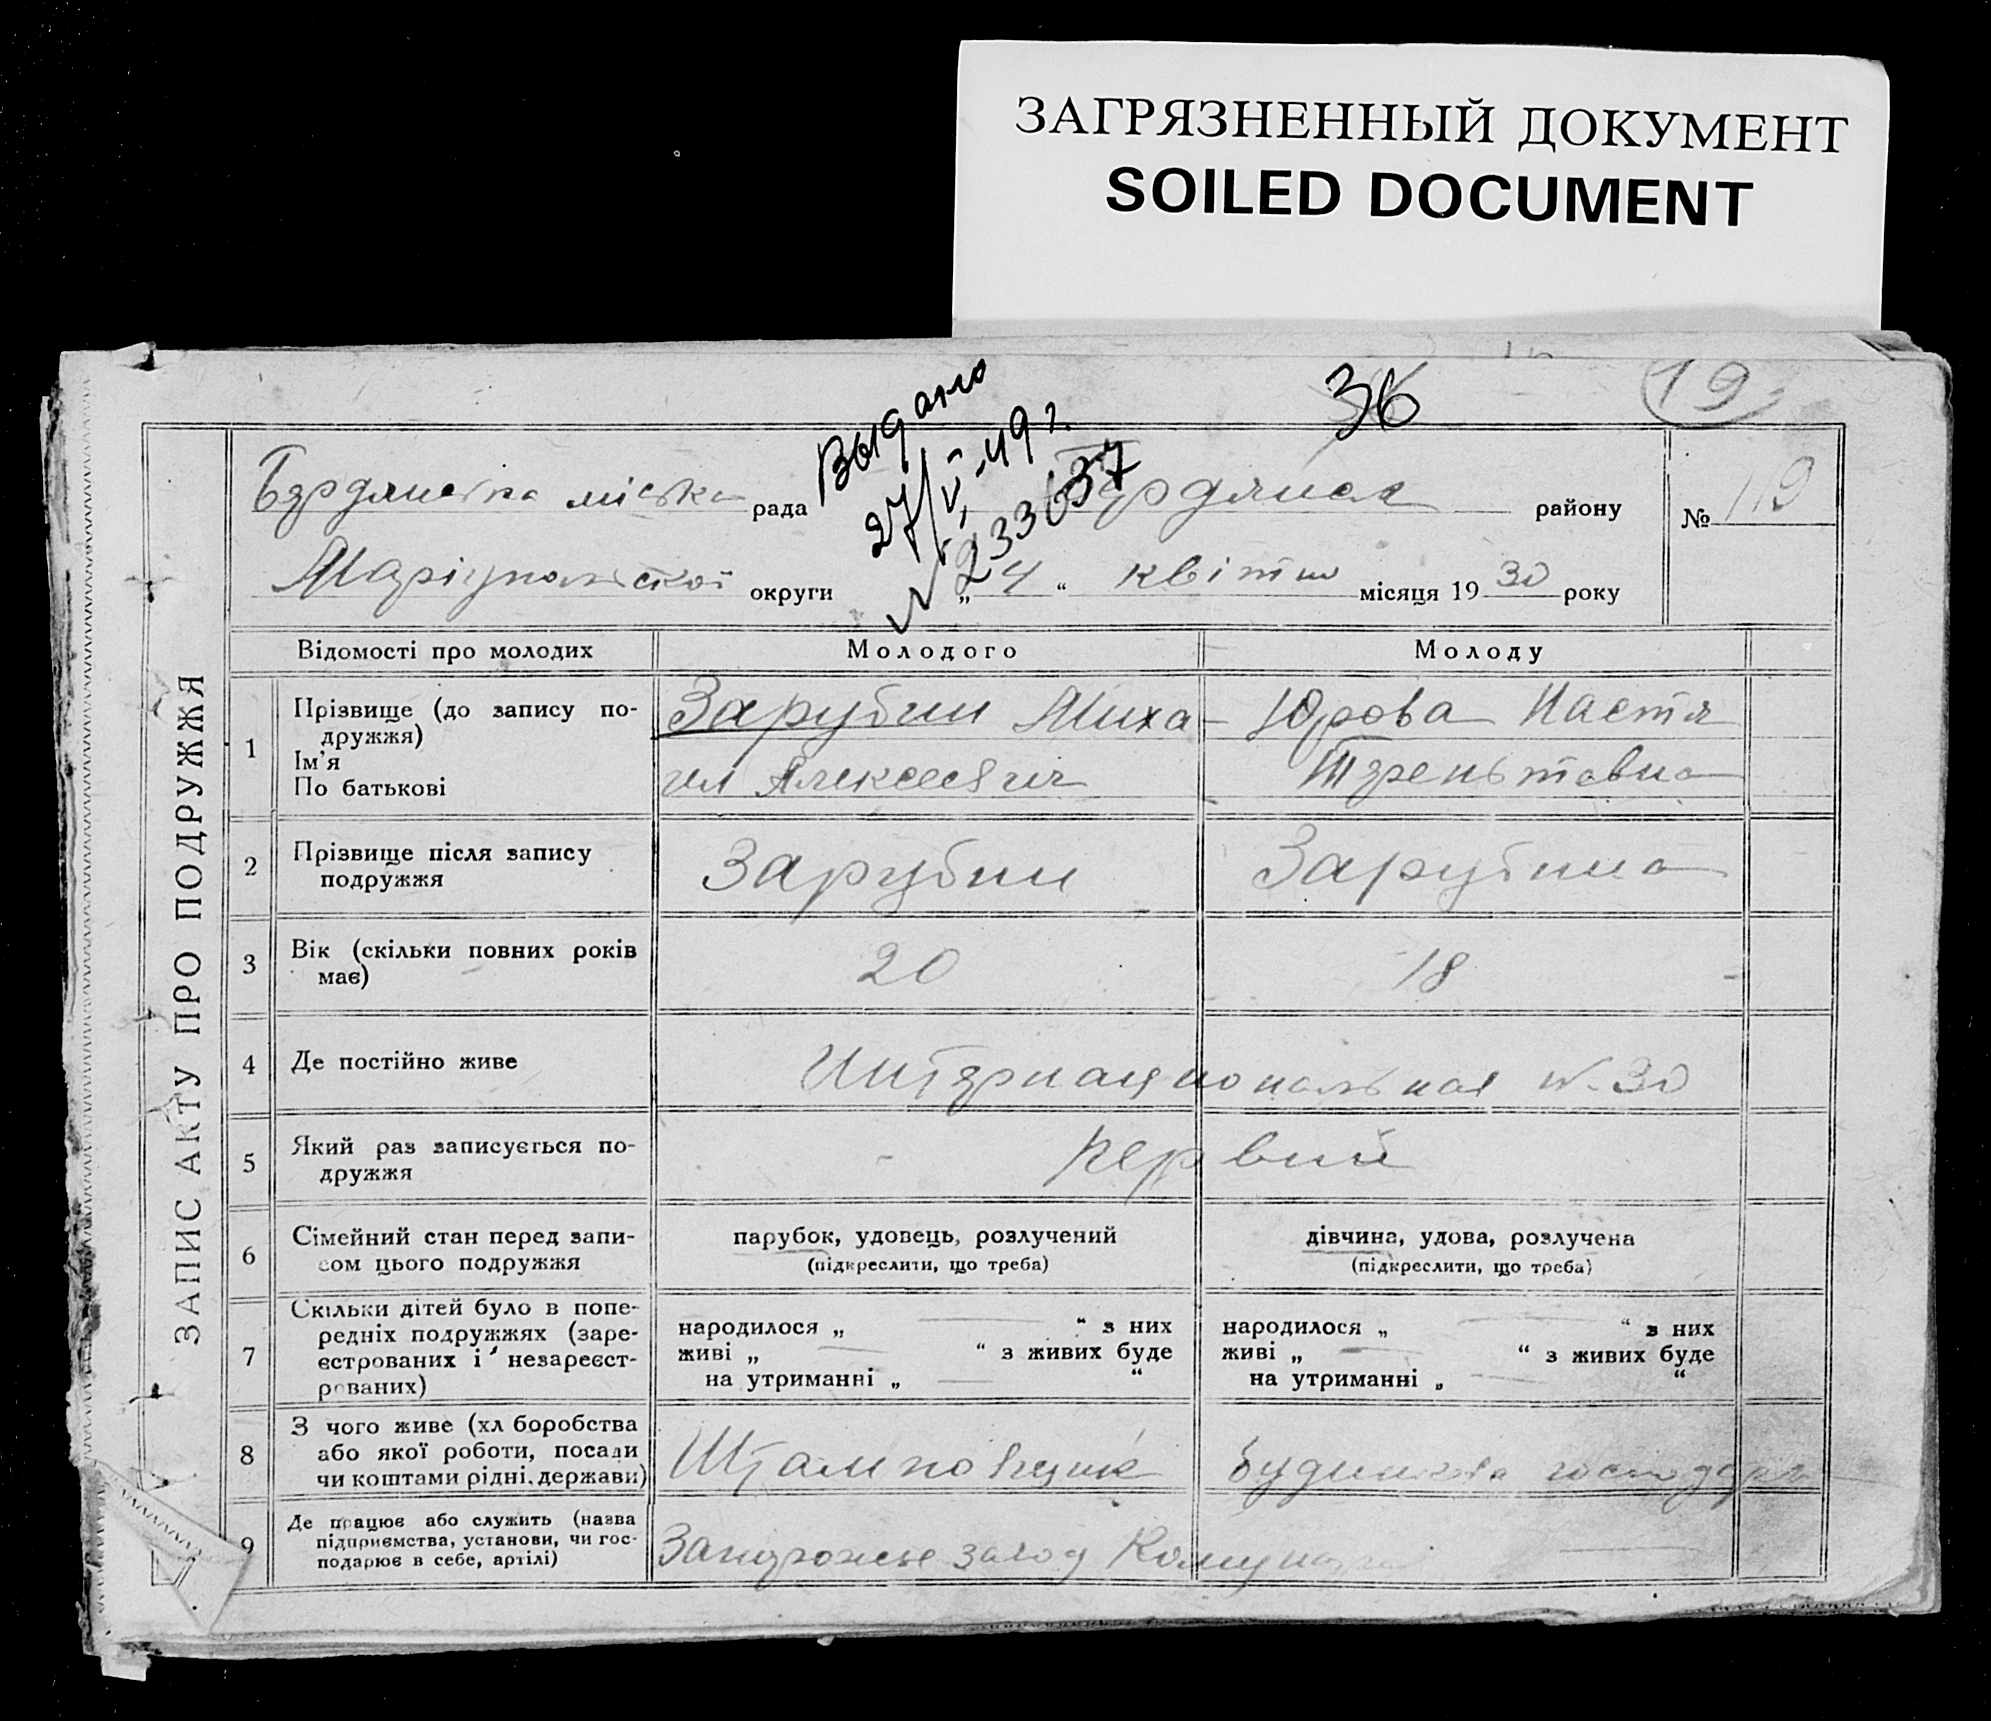 ЗАГРЯЗНЕННЫЙ ДОКУМЕНТ
SOILED DOCUMENT
36
19
Выдано
27/V-49 г.
ЗАПИС АКТУ ПРО ПОДРУЖЖЯ
Бердянська міська рада Бердянск району № 119
Маріупольської округи „24“ квітня місяця 1930 року
Відомості про молодих Молодого Молоду
1 Прізвище (до запису по- Зарубин Миха- Юрова Настя
дружжя)
Ім'я ил Алексеевич Терентьевна
По батькові
2 Прізвище після запису Зарубин Зарубина
подружжя
3 Вік (скільки повних років 20 18
має)
4 Де постійно живе Интернациональная № 30
5 Який раз записується по- первий
дружжя
6 Сімейний стан перед запи- парубок, удовець, розлучений дівчина, удова, розлучена
сом цього подружжя (підкреслити, що треба) (підкреслити, що треба)
7 Скільки дітей було в попе- народилося „ “ з них народилося „ “ з них
редніх подружжях (заре- живі „ “ з живих буде живі „ “ з живих буде
єстрованих і незареєст- на утриманні „ “ на утриманні „ “
рованих)
8 З чого живе (хліборобства Штамповщик
або якої роботи, посади
чи коштами рідні, держави)
9 Де працює або служить (назва Запорожье завод Комунар
підприємства, установи, чи гос-
подарює в себе, артілі)